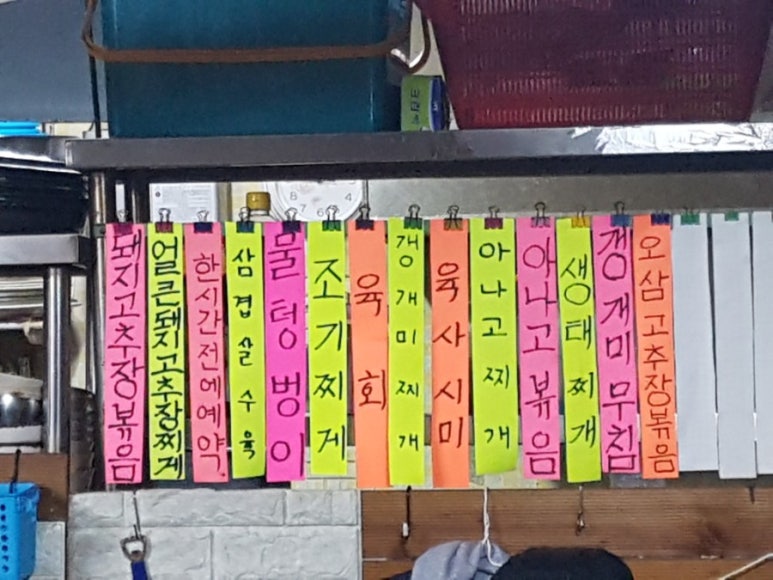 돼지고추장볶음
얼큰돼지고추장찌게
한시간전에예약
삼겹살수육
물텅벙이
조기찌게
육회
갱개미찌개
육사시미
아나고찌개
아나고볶음
생태찌개
갱개미무침
오삼고추장볶음